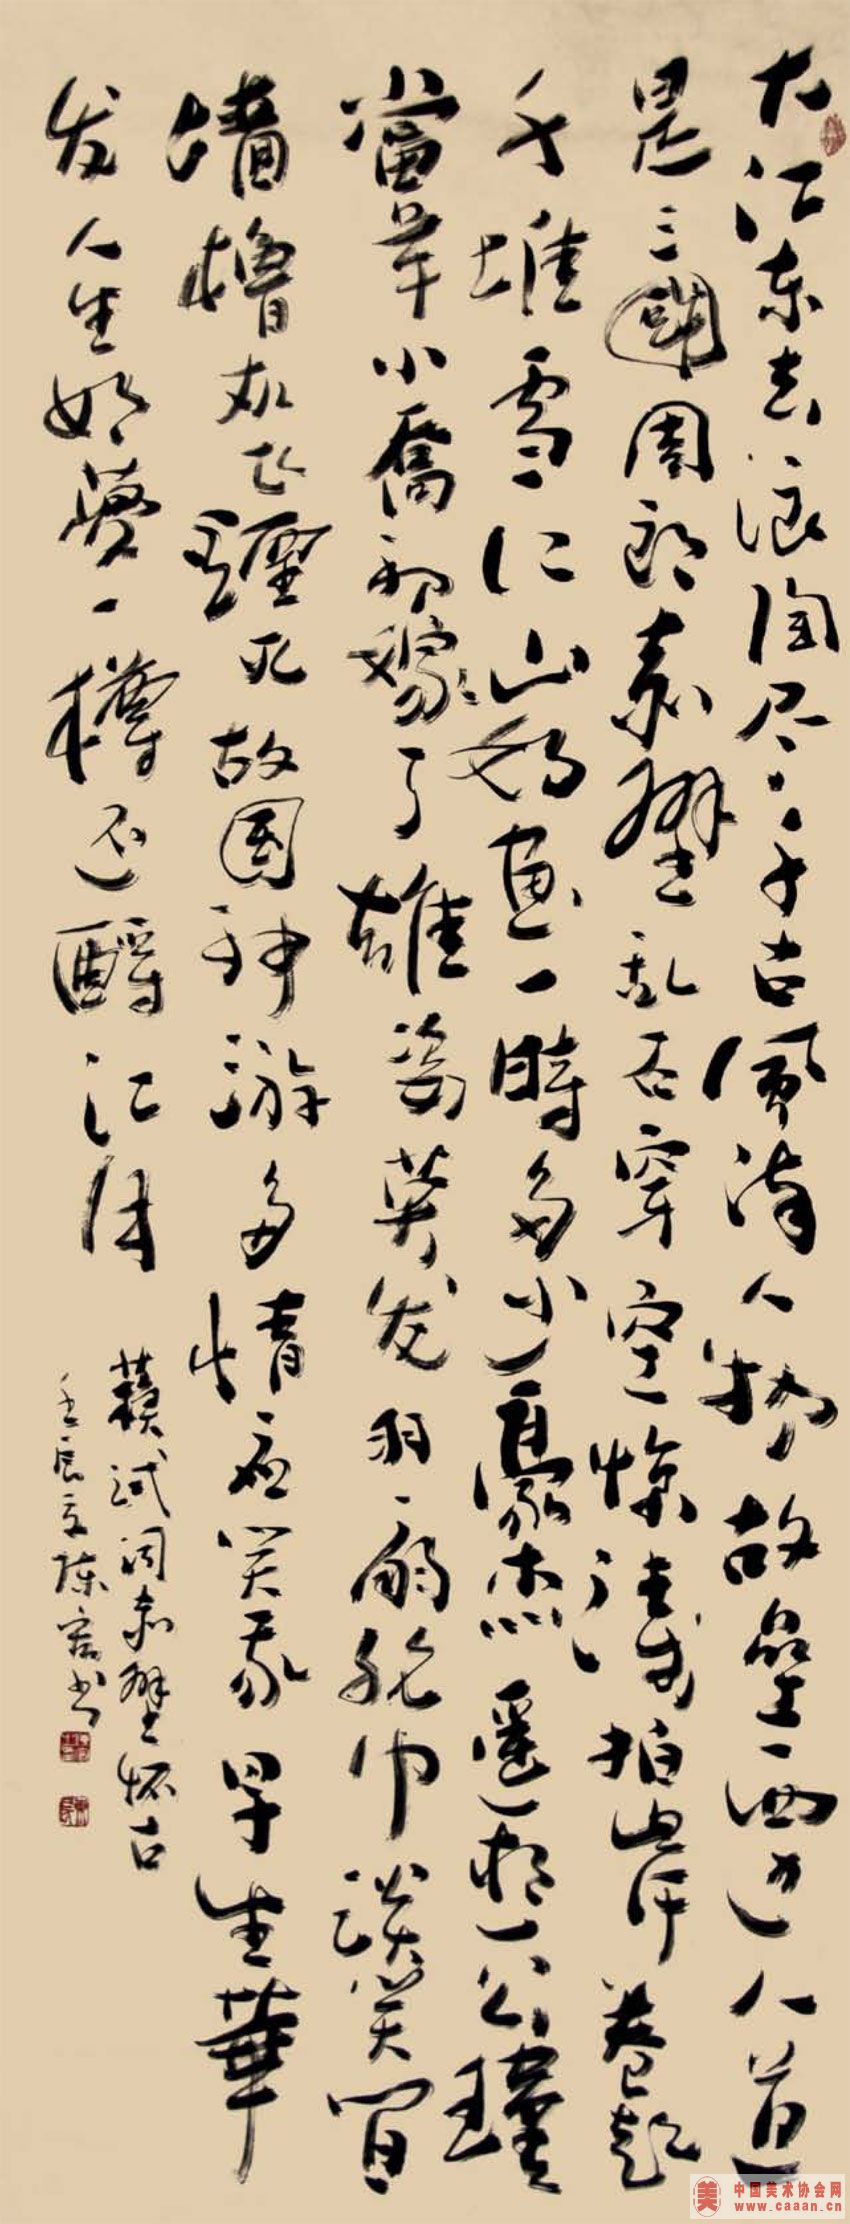 大江东去浪淘尽千古风流人物故垒西边人道
是三國周郎赤壁乱石穿空惊涛拍岸卷起
千堆雪江山如画一時多少豪杰遥想公瑾
當年小喬初嫁了雄姿英发羽扇纶巾談笑间
墙櫓灰飞煙灭故国神游多情应笑我早生華
发人生如夢一樽还酹江月
蘇軾词赤壁怀古
壬辰夏陈宏书
美
中国美术协会网
www.caaan.cn